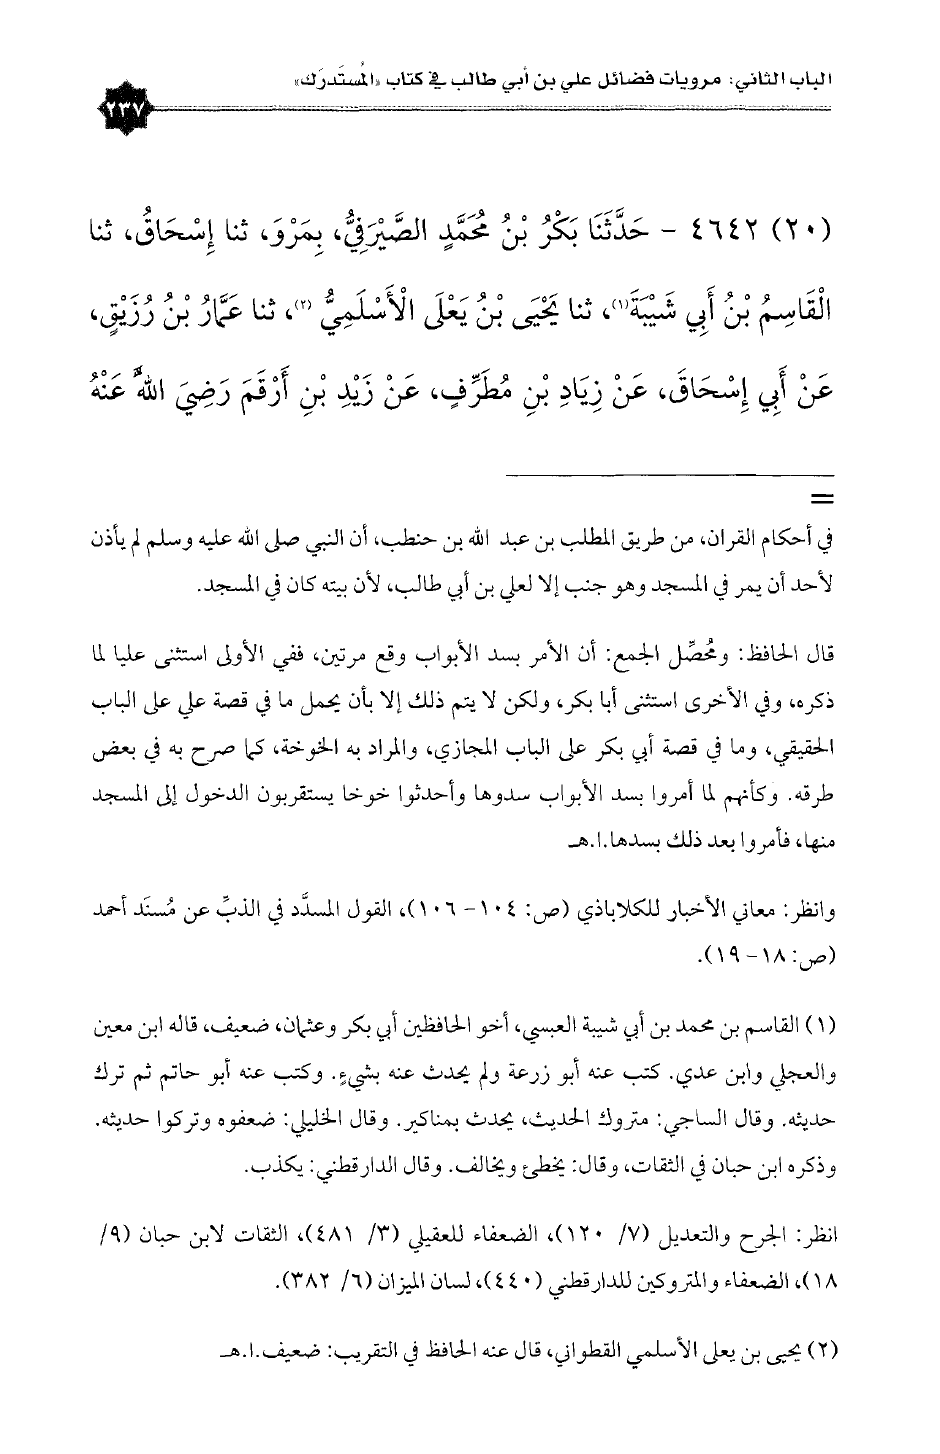 الباب الثاني: مرويات فضائل علي بن أبي طالب في كتاب «المُستَدرَك»
٢٣٧
(٢٠) ٤٦٤٢ - حَدَّثَنَا بَكْرُ بْنُ مُحَمَّدٍ الصَّيْرَفِيُّ، بِمَرْوَ، ثنا إِسْحَاقُ، ثنا
الْقَاسِمُ بْنُ أَبِي شَيْبَةَ(١)، ثنا يَحْيَى بْنُ يَعْلَى الْأَسْلَمِيُّ (٢)، ثنا عَمَّارُ بْنُ رُزَيْقٍ،
عَنْ أَبِي إِسْحَاقَ، عَنْ زِيَادِ بْنِ مُطَرِّفٍ، عَنْ زَيْدِ بْنِ أَرْقَمَ رَضِيَ اللهُ عَنْهُ
=
في أحكام القران، من طريق المطلب بن عبد الله بن حنطب، أن النبي صلى الله عليه وسلم لم يأذن
لأحد أن يمر في المسجد وهو جنب إلا لعلي بن أبي طالب، لأن بيته كان في المسجد.
قال الحافظ: ومُحصِّل الجمع: أن الأمر بسد الأبواب وقع مرتين، ففي الأولى استثنى عليا لما
ذكره، وفي الأخرى استثنى أبا بكر، ولكن لا يتم ذلك إلا بأن يحمل ما في قصة علي على الباب
الحقيقي، وما في قصة أبي بكر على الباب المجازي، والمراد به الخوخة، كما صرح به في بعض
طرقه. وكأنهم لما أمروا بسد الأبواب سدوها وأحدثوا خوخا يستقربون الدخول إلى المسجد
منها، فأمروا بعد ذلك بسدها.ا.هـ
وانظر: معاني الأخبار للكلاباذي (ص: ١٠٤- ١٠٦)، القول المسدَّد في الذبِّ عن مُسنَد أحمد
(ص: ١٨- ١٩).
(١) القاسم بن محمد بن أبي شيبة العبسي، أخو الحافظين أبي بكر وعثمان، ضعيف، قاله ابن معين
والعجلي وابن عدي. كتب عنه أبو زرعة ولم يحدث عنه بشيءٍ. وكتب عنه أبو حاتم ثم ترك
حديثه. وقال الساجي: متروك الحديث، يحدث بمناكير. وقال الخليلي: ضعفوه وتركوا حديثه.
وذكره ابن حبان في الثقات، وقال: يخطئ ويخالف. وقال الدارقطني: يكذب.
انظر: الجرح والتعديل (٧/ ١٢٠)، الضعفاء للعقيلي (٣/ ٤٨١)، الثقات لابن حبان (٩/
١٨)، الضعفاء والمتروكين للدارقطني (٤٤٠)، لسان الميزان (٦/ ٣٨٢).
(٢) يحيى بن يعلى الأسلمي القطواني، قال عنه الحافظ في التقريب: ضعيف.ا.هـ